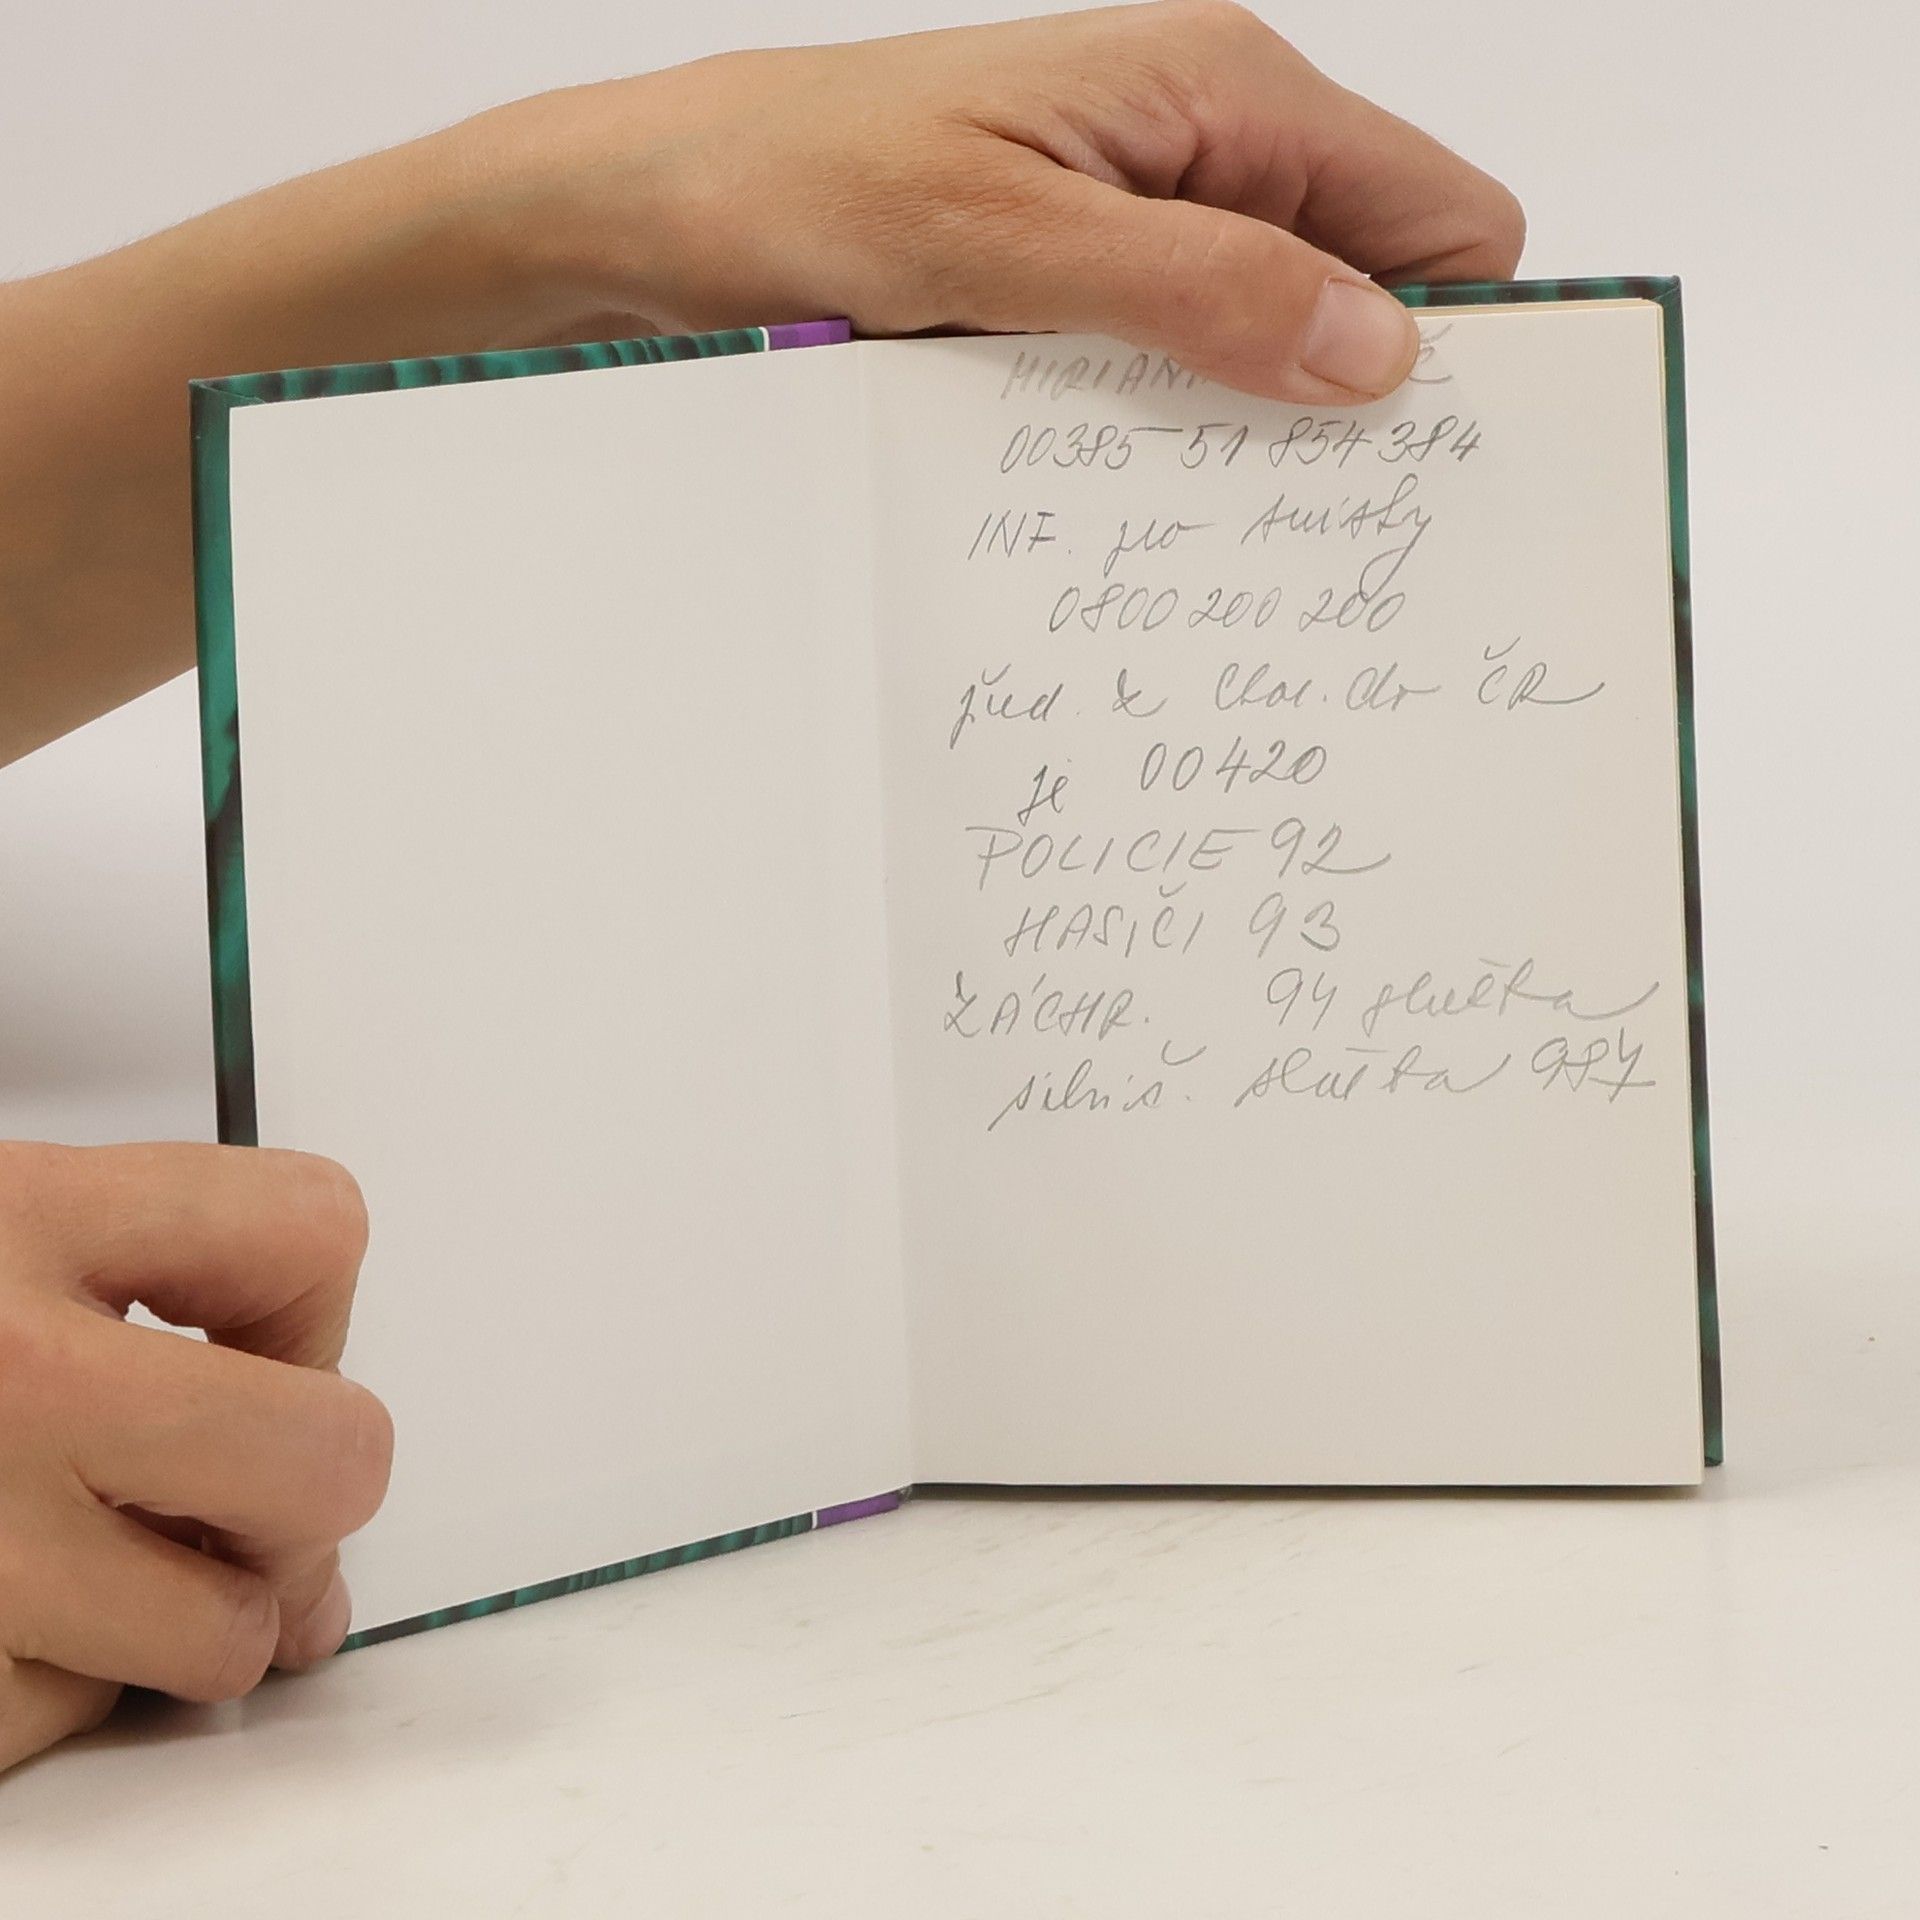 00385 51 854384
INF. pro turisty
0800 200 200
z Chor. do ČR
je 00420
POLICIE 92
HASIČI 93
ZÁCHR. 94 služba
silnič. služba 987